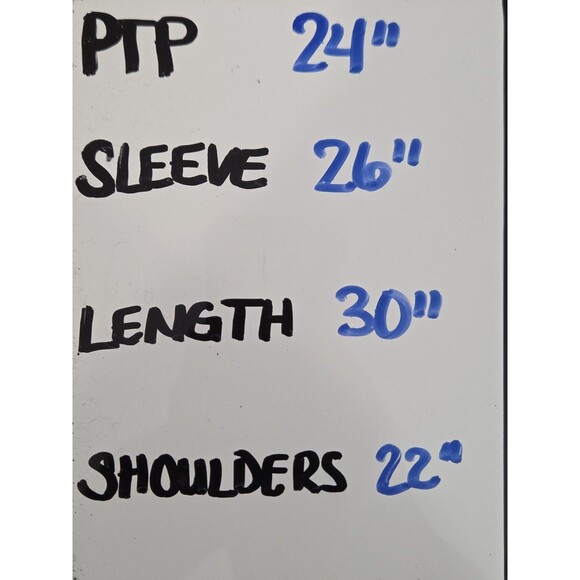 PTP 24"
SLEEVE 26"
LENGTH 30"
SHOULDERS 22"